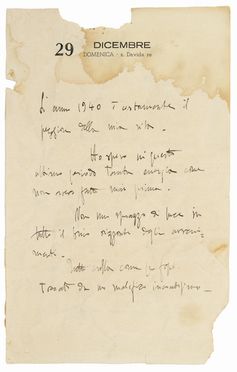 29 DICEMBRE
DOMENICA - s. Davide re
Li anno 1940 è certamente il
peggiore della mia vita.
Ho speso in questo
ultimo periodo tanta energia come
non avevo fatto mai prima.
Non uno sprazzo di luce in
tutto il mio orizzonte degli avveni-
menti.
Tutto crolla come se fosse
toccato da un malefico incantesimo